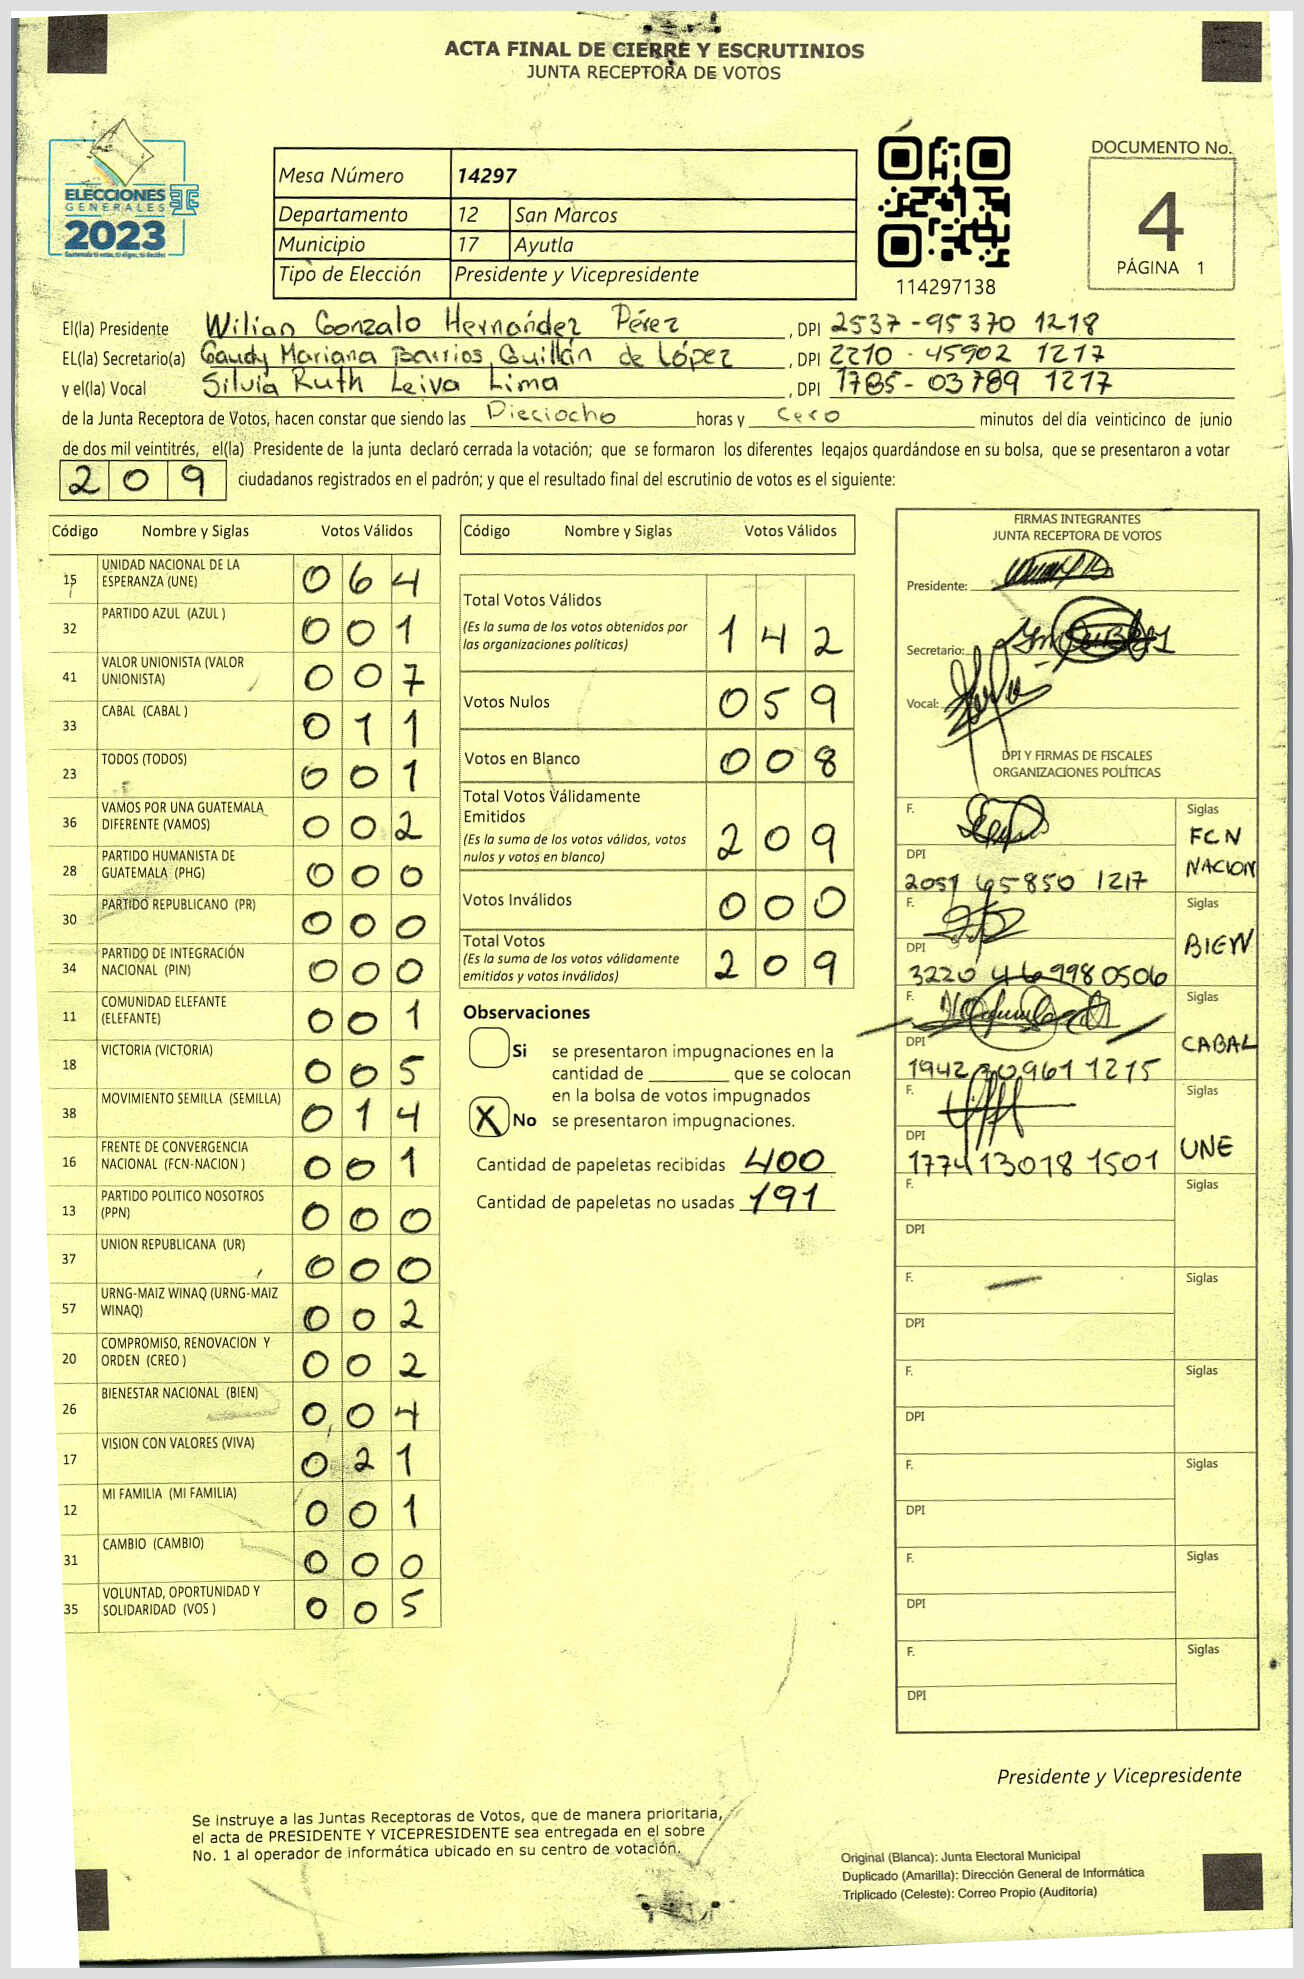 ACTA FINAL DE CIERRE Y ESCRUTINIOS
JUNTA RECEPTORA DE VOTOS
ELECCIONES
GENERALES
2023
Mesa Número 14297
Departamento 12 San Marcos
Municipio 17 Ayutla
Tipo de Elección Presidente y Vicepresidente
114297138
DOCUMENTO No.
4
PÁGINA 1
El(la) Presidente Wilian Gonzalo Hernández Pérez, DPI 2537-95370 1218
EL(la) Secretario(a) Gaudy Mariana Barrios Guillán de López, DPI 2210-45902 1217
y el(la) Vocal Silvia Ruth Leiva Lima, DPI 1785-03789 1217
de la Junta Receptora de Votos, hacen constar que siendo las Dieciocho horas y Cero minutos del día veinticinco de junio
de dos mil veintitrés, el(la) Presidente de la junta declaró cerrada la votación; que se formaron los diferentes legajos guardándose en su bolsa, que se presentaron a votar
209 ciudadanos registrados en el padrón; y que el resultado final del escrutinio de votos es el siguiente:
Código Nombre y Siglas Votos Válidos
15 UNIDAD NACIONAL DE LA ESPERANZA (UNE) 064
32 PARTIDO AZUL (AZUL ) 001
41 VALOR UNIONISTA (VALOR UNIONISTA) 007
33 CABAL (CABAL ) 011
23 TODOS (TODOS) 001
36 VAMOS POR UNA GUATEMALA DIFERENTE (VAMOS) 002
28 PARTIDO HUMANISTA DE GUATEMALA (PHG) 000
30 PARTIDO REPUBLICANO (PR) 000
34 PARTIDO DE INTEGRACIÓN NACIONAL (PIN) 000
11 COMUNIDAD ELEFANTE (ELEFANTE) 001
18 VICTORIA (VICTORIA) 005
38 MOVIMIENTO SEMILLA (SEMILLA) 014
16 FRENTE DE CONVERGENCIA NACIONAL (FCN-NACION ) 001
13 PARTIDO POLITICO NOSOTROS (PPN) 000
37 UNION REPUBLICANA (UR) 000
57 URNG-MAIZ WINAQ (URNG-MAIZ WINAQ) 002
20 COMPROMISO, RENOVACION Y ORDEN (CREO ) 002
26 BIENESTAR NACIONAL (BIEN) 004
17 VISION CON VALORES (VIVA) 021
12 MI FAMILIA (MI FAMILIA) 001
31 CAMBIO (CAMBIO) 000
35 VOLUNTAD, OPORTUNIDAD Y SOLIDARIDAD (VOS ) 005
Código Nombre y Siglas Votos Válidos
Total Votos Válidos
(Es la suma de los votos obtenidos por las organizaciones políticas) 142
Votos Nulos 059
Votos en Blanco 008
Total Votos Válidamente Emitidos
(Es la suma de los votos válidos, votos nulos y votos en blanco) 209
Votos Inválidos 000
Total Votos
(Es la suma de los votos válidamente emitidos y votos inválidos) 209
Observaciones
Si se presentaron impugnaciones en la
cantidad de ________ que se colocan
en la bolsa de votos impugnados
X No se presentaron impugnaciones.
Cantidad de papeletas recibidas 400
Cantidad de papeletas no usadas 191
FIRMAS INTEGRANTES
JUNTA RECEPTORA DE VOTOS
Presidente:
Secretario:
Vocal:
DPI Y FIRMAS DE FISCALES
ORGANIZACIONES POLÍTICAS
F. Siglas FCN NACION
DPI 2051 65850 1217
F. Siglas BIEN
DPI 3220 46998 0506
F. Siglas CABAL
DPI 1942 70961 1215
F. Siglas UNE
DPI 1774 13018 1501
F. Siglas
DPI
F. Siglas
DPI
F. Siglas
DPI
F. Siglas
DPI
F. Siglas
DPI
F. Siglas
DPI
Presidente y Vicepresidente
Se instruye a las Juntas Receptoras de Votos, que de manera prioritaria,
el acta de PRESIDENTE Y VICEPRESIDENTE sea entregada en el sobre
No. 1 al operador de informática ubicado en su centro de votación.
Original (Blanca): Junta Electoral Municipal
Duplicado (Amarilla): Dirección General de Informática
Triplicado (Celeste): Correo Propio (Auditoría)